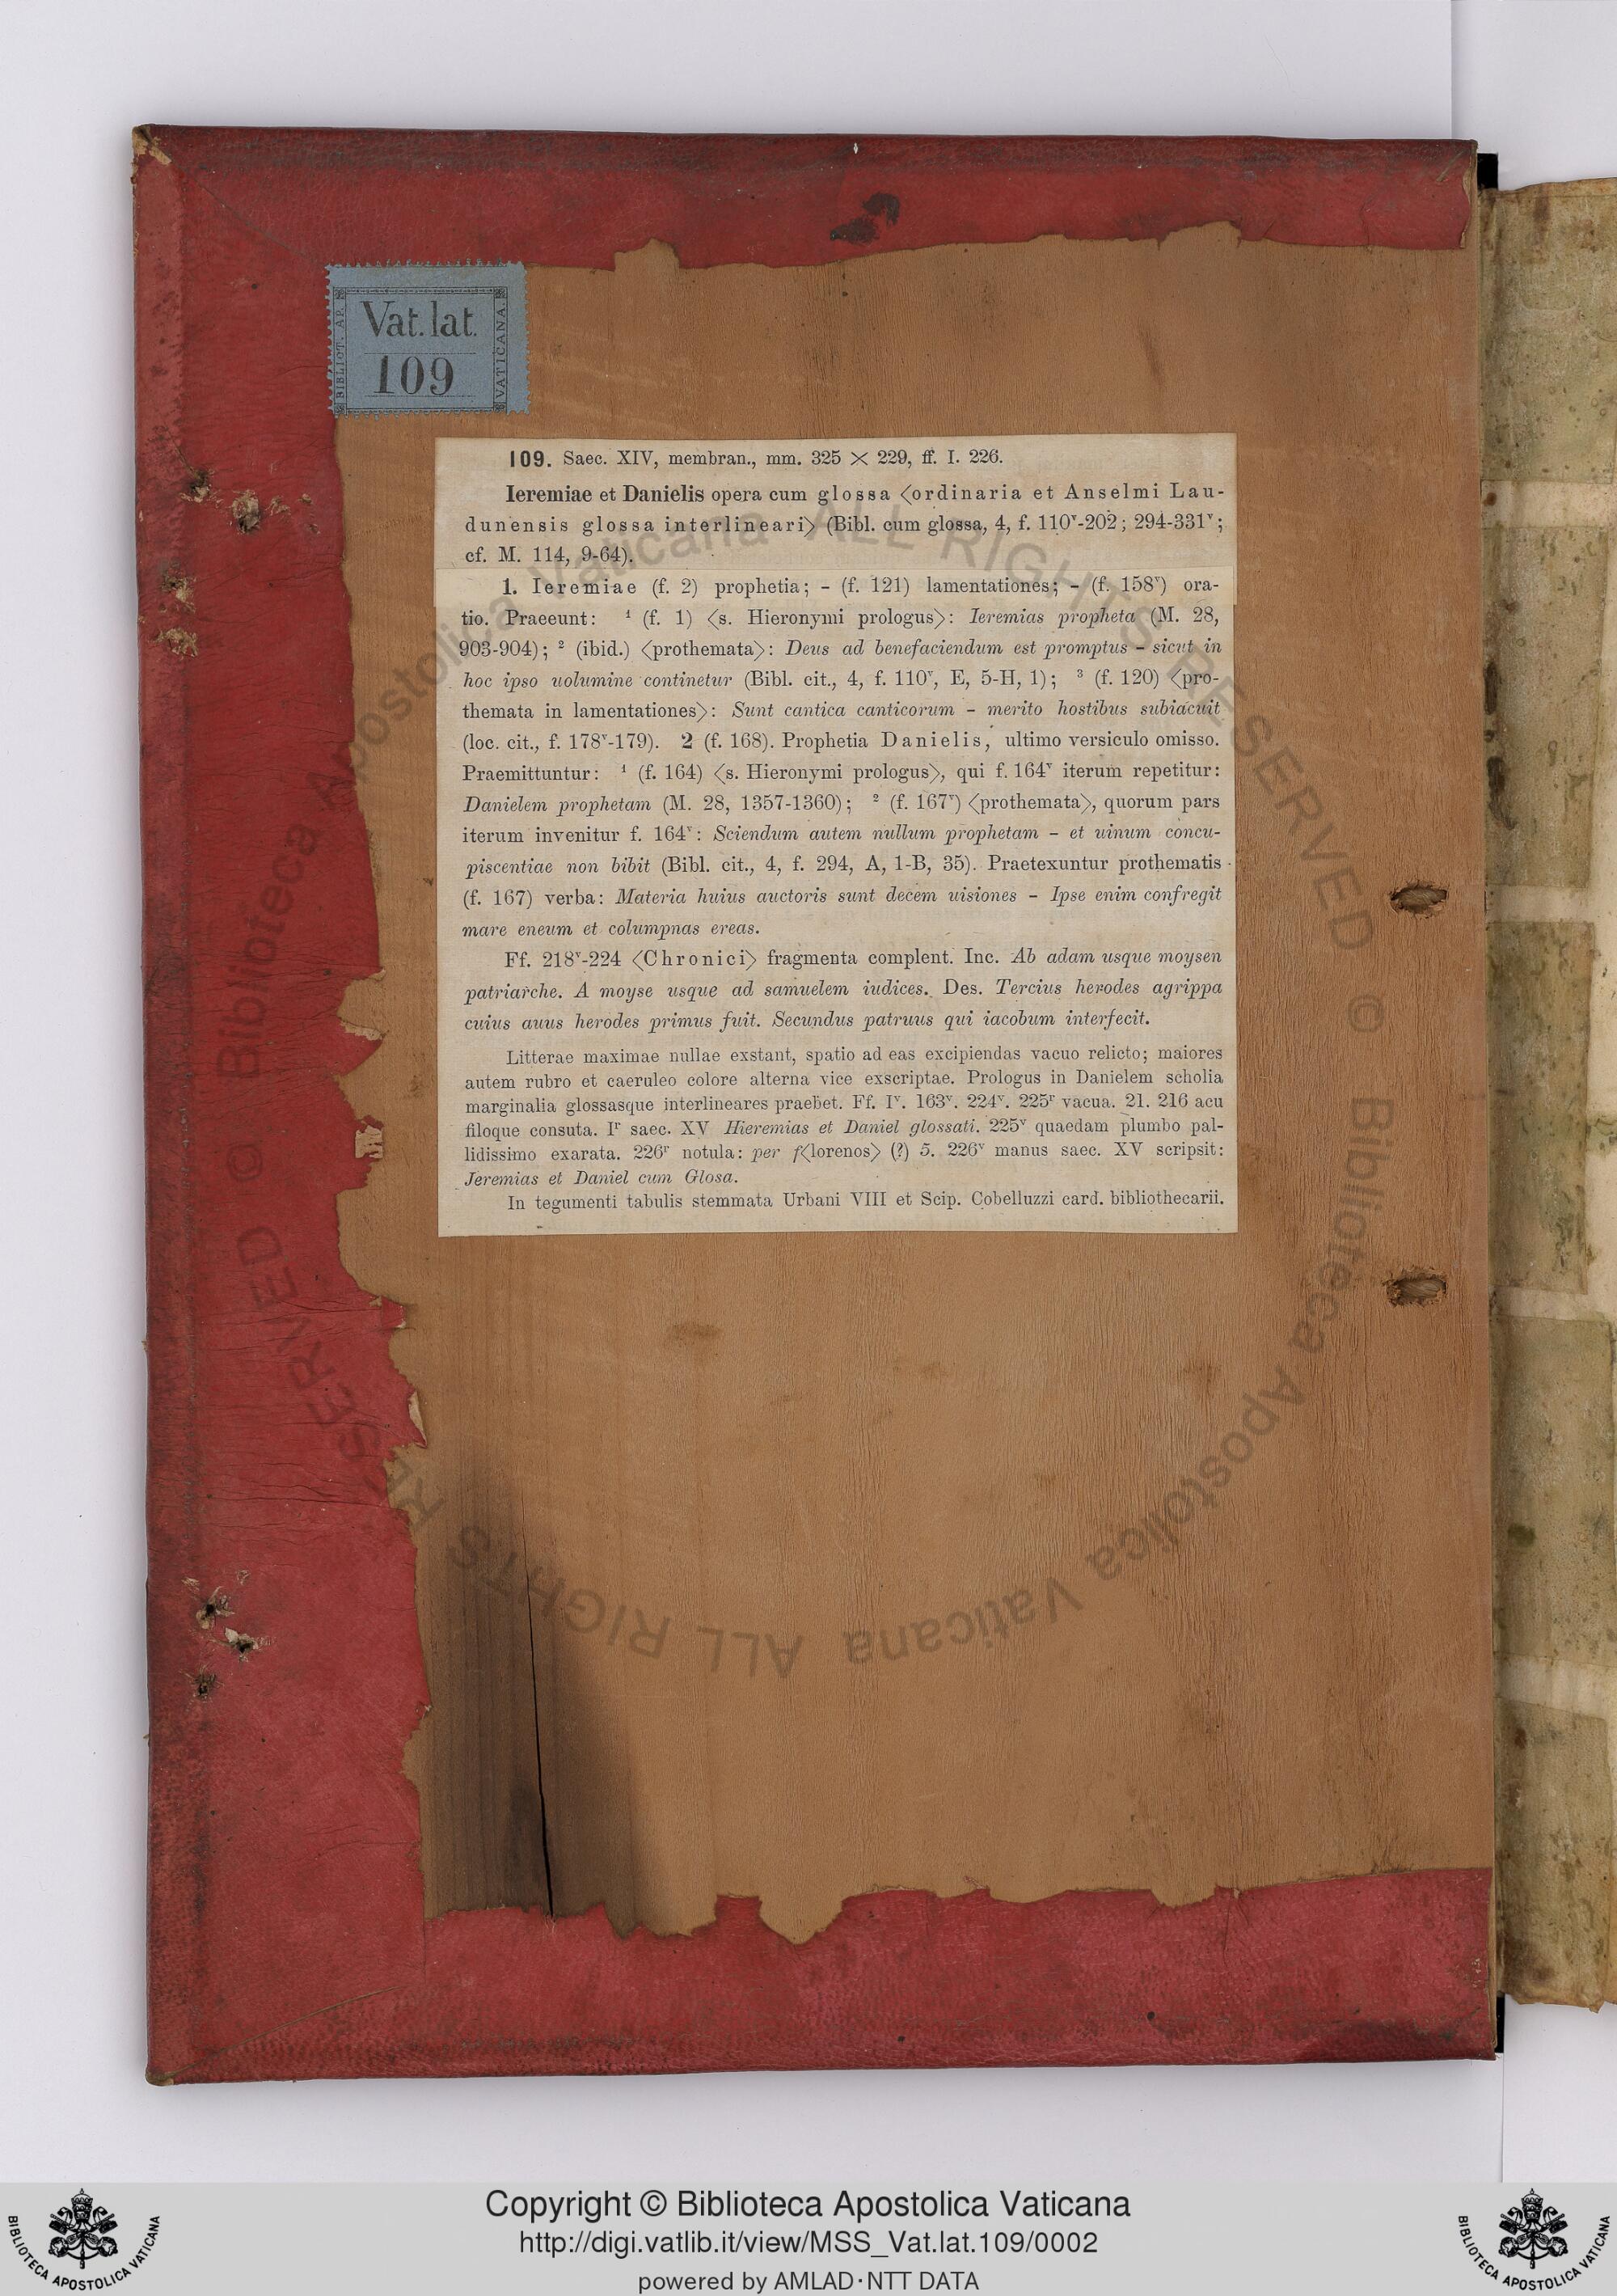 BIBLIOT. AP. VATICANA.
Vat. lat.
109
109. Saec. XIV, membran., mm. 325 × 229, ff. I. 226.
Ieremiae et Danielis opera cum glossa ⟨ordinaria et Anselmi Lau-
dunensis glossa interlineari⟩ (Bibl. cum glossa, 4, f. 110ᵛ-202; 294-331ᵛ;
cf. M. 114, 9-64).
1. Ieremiae (f. 2) prophetia; – (f. 121) lamentationes; – (f. 158ᵛ) ora-
tio. Praeeunt: ¹ (f. 1) ⟨s. Hieronymi prologus⟩: Ieremias propheta (M. 28,
903-904); ² (ibid.) ⟨prothemata⟩: Deus ad benefaciendum est promptus – sicut in
hoc ipso uolumine continetur (Bibl. cit., 4, f. 110ᵛ, E, 5-H, 1); ³ (f. 120) ⟨pro-
themata in lamentationes⟩: Sunt cantica canticorum – merito hostibus subiacuit
(loc. cit., f. 178ᵛ-179). 2 (f. 168). Prophetia Danielis, ultimo versiculo omisso.
Praemittuntur: ¹ (f. 164) ⟨s. Hieronymi prologus⟩, qui f. 164ᵛ iterum repetitur:
Danielem prophetam (M. 28, 1357-1360); ² (f. 167ᵛ) ⟨prothemata⟩, quorum pars
iterum invenitur f. 164ᵛ: Sciendum autem nullum prophetam – et uinum concu-
piscentiae non bibit (Bibl. cit., 4, f. 294, A, 1-B, 35). Praetexuntur prothematis
(f. 167) verba: Materia huius auctoris sunt decem uisiones – Ipse enim confregit
mare eneum et columpnas ereas.
Ff. 218ᵛ-224 ⟨Chronici⟩ fragmenta complent. Inc. Ab adam usque moysen
patriarche. A moyse usque ad samuelem iudices. Des. Tercius herodes agrippa
cuius auus herodes primus fuit. Secundus patruus qui iacobum interfecit.
Litterae maximae nullae exstant, spatio ad eas excipiendas vacuo relicto; maiores
autem rubro et caeruleo colore alterna vice exscriptae. Prologus in Danielem scholia
marginalia glossasque interlineares praebet. Ff. Iᵛ. 163ᵛ. 224ᵛ. 225ʳ vacua. 21. 216 acu
filoque consuta. Iʳ saec. XV Hieremias et Daniel glossati. 225ᵛ quaedam plumbo pal-
lidissimo exarata. 226ʳ notula: per f⟨lorenos⟩ (?) 5. 226ᵛ manus saec. XV scripsit:
Jeremias et Daniel cum Glosa.
In tegumenti tabulis stemmata Urbani VIII et Scip. Cobelluzzi card. bibliothecarii.
© Biblioteca Apostolica Vaticana ALL RIGHTS RESERVED © Biblioteca Apostolica Vaticana ALL RIGHTS RESERVED
BIBLIOTECA APOSTOLICA VATICANA
Copyright © Biblioteca Apostolica Vaticana
http://digi.vatlib.it/view/MSS_Vat.lat.109/0002
powered by AMLAD·NTT DATA
BIBLIOTECA APOSTOLICA VATICANA